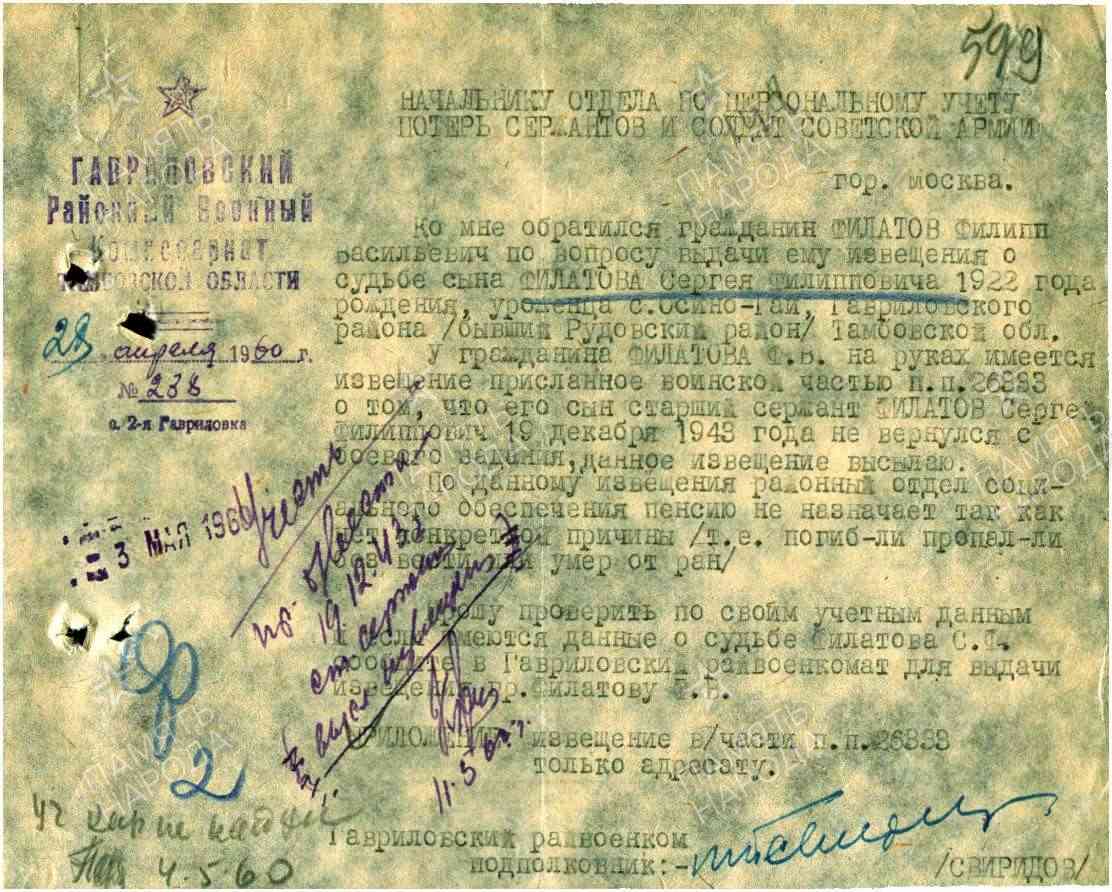 599
НАЧАЛЬНИКУ ОТДЕЛА ПО ПЕРСОНАЛЬНОМУ УЧЕТУ
ПОТЕРЬ СЕРЖАНТОВ И СОЛДАТ СОВЕТСКОЙ АРМИИ
гор. москва.
ГАВРИЛОВСКИЙ
Районный Военный
Комиссариат
ТАМБОВСКОЙ ОБЛАСТИ
28 апреля 1960 г.
№ 238
с. 2-я Гавриловка
Ко мне обратился гражданин ФИЛАТОВ Филипп
Васильевич по вопросу выдачи ему извещения о
судьбе сына ФИЛАТОВА Сергея Филипповича 1922 года
рождения, уроженца с.Осино-Гай, Гавриловского
района /бывший Рудовский район/ Тамбовской обл.
У гражданина ФИЛАТОВА Ф.В. на руках имеется
извещение присланное воинской частью п.п.26383
о том, что его сын старший сержант ФИЛАТОВ Сергей
Филиппович 19 декабря 1943 года не вернулся с
боевого задания,данное извещение высылаю.
По данному извещения районный отдел соци-
ального обеспечения пенсию не назначает так как
нет конкретной причины /т.е. погиб-ли пропал-ли
без вести или умер от ран/
Прошу проверить по своим учетным данным
и если имеются данные о судьбе Филатова С.Ф.
сообщите в Гавриловский райвоенкомат для выдачи
извещения гр.Филатову Ф.В.
ПРИЛОЖЕНИЕ: извещение в/части п.п.26383
только адресату.
Гавриловский райвоенком
подполковник:-
/СВИРИДОВ/
3 МАЯ 1960
Учесть
пр. б/вести
19.12.43 г
ст. сержант
высл извещение
11.5.60 г.
2
уч карт не найден
4.5.60
ПАМЯТЬ
НАРОДА
ПАМЯТЬ
НАРОДА
ПАМЯТЬ
НАРОДА
ПАМЯТЬ
НАРОДА
ПАМЯТЬ
НАРОДА